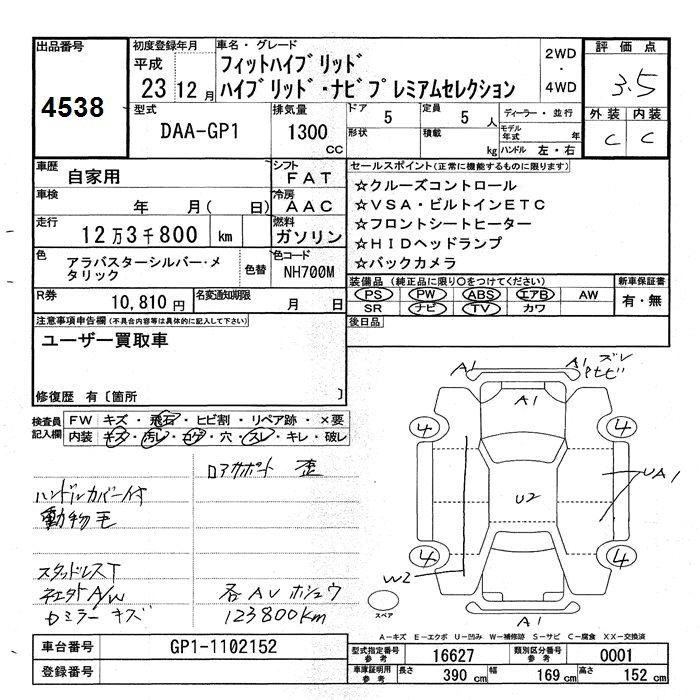 出品番号
4538
初度登録年月
平成
23 12 月
車名・グレード
フィットハイブリッド
ハイブリッド・ナビプレミアムセレクション
2WD
・
4WD
評価点
3.5
外装 内装
C C
型式
DAA-GP1
排気量
1300
CC
ドア
5
定員
5 人
形状
積載
kg
ディーラー・並行
モデル年式 年
ハンドル 左・右
車歴
自家用
シフト
FAT
車検
年 月( 日)
冷房
AAC
走行
12万3千800 km
燃料
ガソリン
色
アラバスターシルバー・メ
タリック
色替
色コード
NH700M
R券
10,810 円
名変通知期限
月 日
セールスポイント(正常に機能するものに限ります)
☆クルーズコントロール
☆VSA・ビルトインETC
☆フロントシートヒーター
☆HIDヘッドランプ
☆バックカメラ
装備品 (純正品に限り○をつけてください)
新車保証書
PS PW ABS エアB AW
SR ナビ TV カワ
有・無
後日品
注意事項申告欄(不具合内容等は具体的に記入して下さい)
ユーザー買取車
修復歴 有〔箇所 〕
検査員
記入欄
FW キズ・飛石・ヒビ割・リペア跡・×要
内装 キズ・汚レ・コゲ・穴・スレ・キレ・破レ
ロアサポート 歪
ハンドルカバー付
動物毛
スタッドレスT
各AUホシュウ
123800km
ミラー キズ
A1
A1 ズレ
A1
4
4
U2
UA1
4
4
W2
A1
スペア
A-キズ E-エクボ U-凹み W-補修跡 S-サビ C-腐食 XX-交換済
車台番号
GP1-1102152
登録番号
型式指定番号
参考
16627
類別区分番号
参考
0001
車庫証明用
参考
長さ
390 cm
幅
169 cm
高さ
152 cm